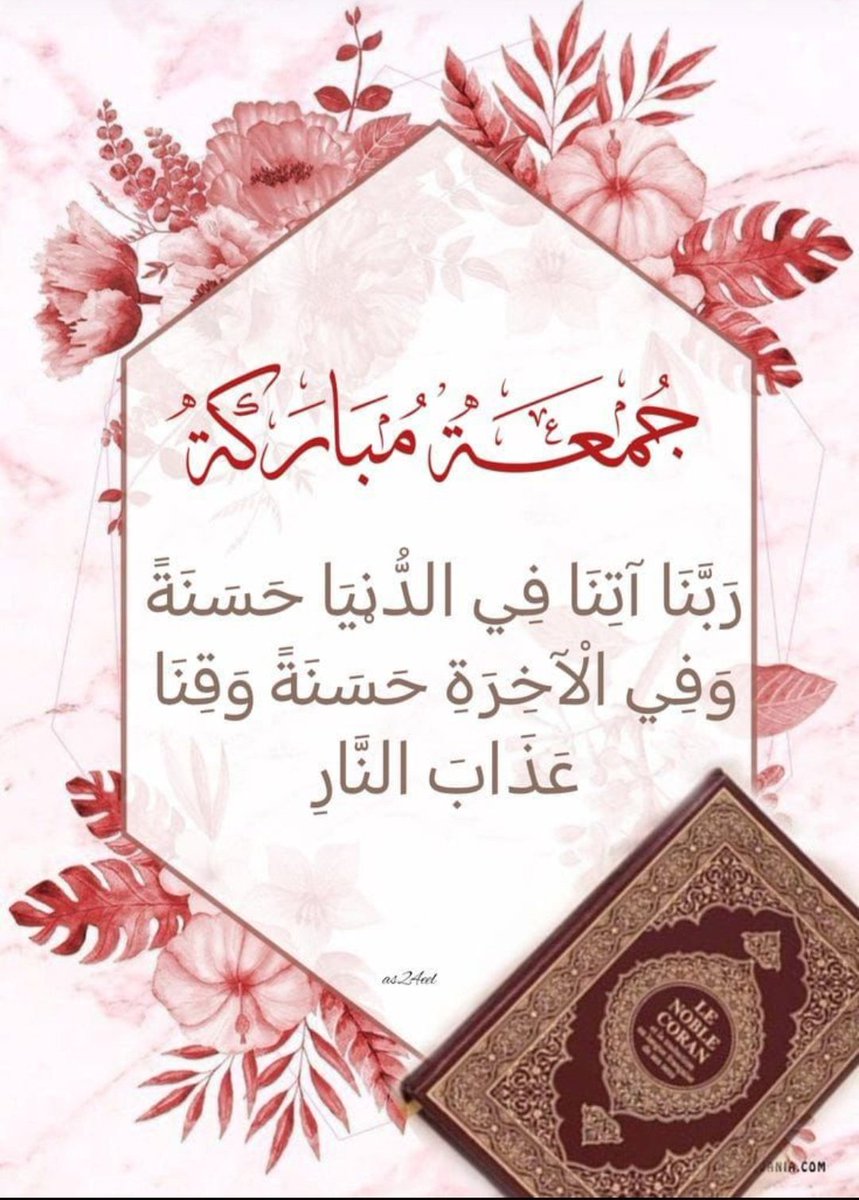 جُمعَةُ مُبَارَكَةُ
رَبَّنَا آتِنَا فِي الدُّنْيَا حَسَنَةً
وَفِي الْآخِرَةِ حَسَنَةً وَقِنَا
عَذَابَ النَّارِ
as24eel
LE
NOBLE
CORAN
.COM